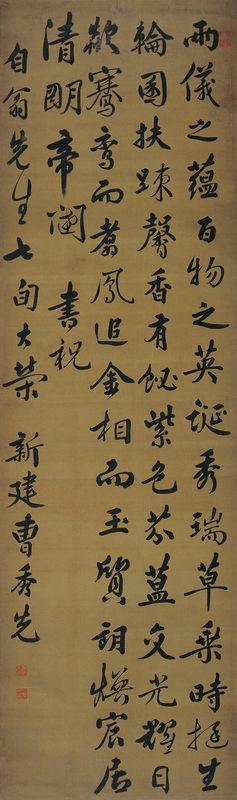 兩儀之蘊百物之英誕秀瑞草乘時挺生
輪囷扶疎馨香有飶紫色芬藴文光耀日
欲騫鸞而翥鳳追金相而玉質朗煥宸居
清明帝闥 書祝
自翁先生七旬大榮 新建曹秀先